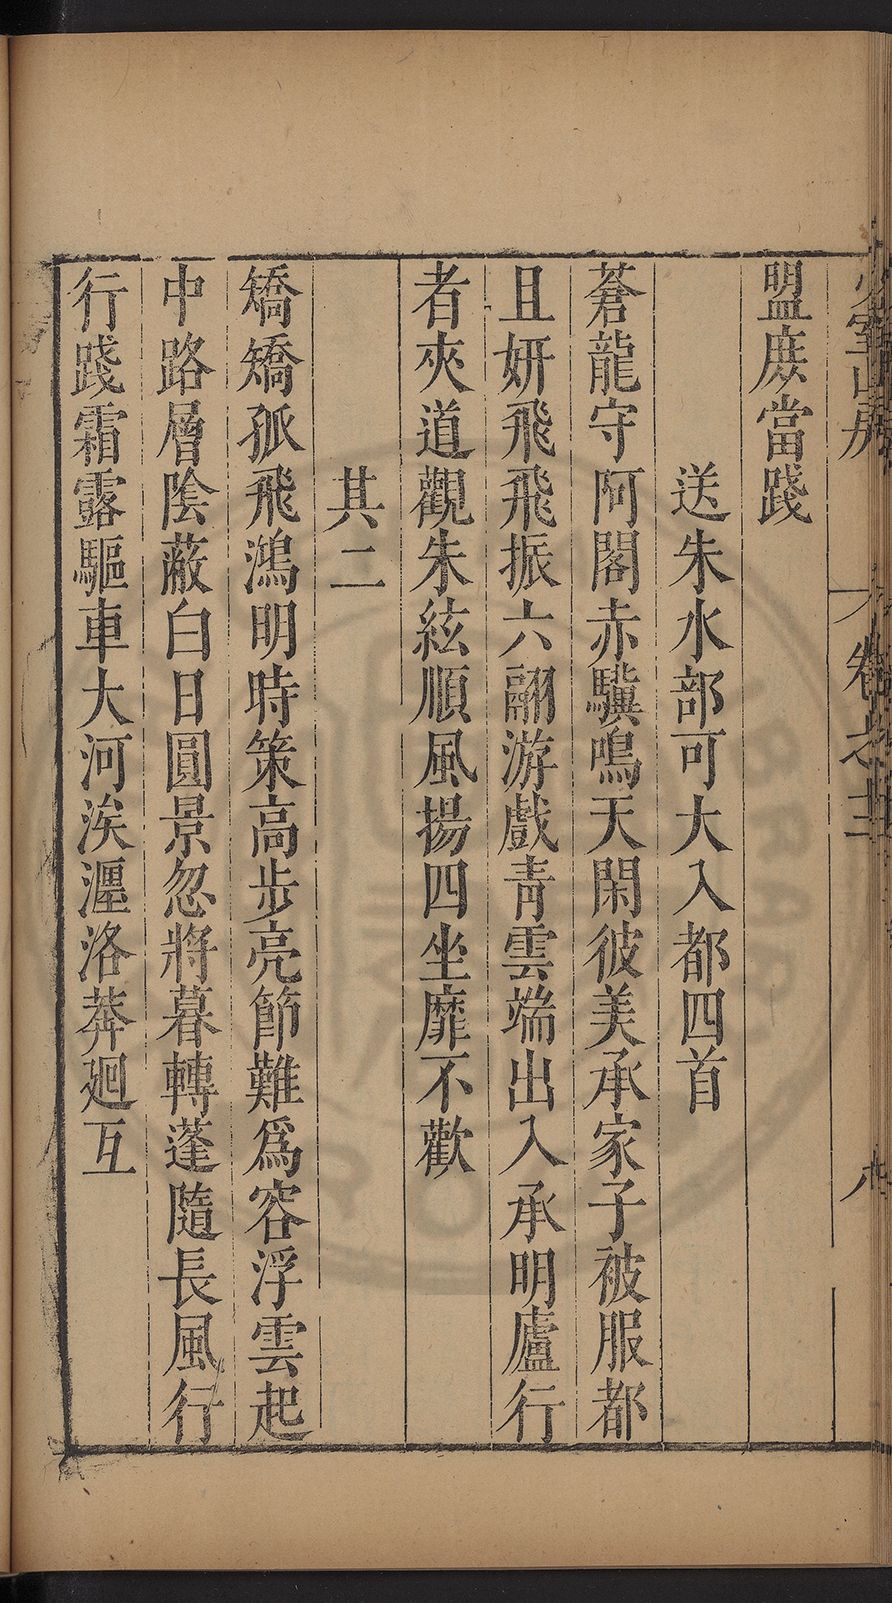 少室山房
卷之十二
八
盟庻當踐
送朱水部可大入都四首
蒼龍守阿閣赤驥鳴天閑彼美承家子被服都
且妍飛飛振六翮游戲青雲端出入承明廬行
者夾道觀朱絃順風揚四坐靡不歡
其二
矯矯孤飛鴻明時策高步亮節難爲容浮雲起
中路層陰蔽白日圓景忽將暮轉蓬隨長風行
行踐霜露驅車大河涘瀍洛莽廻互